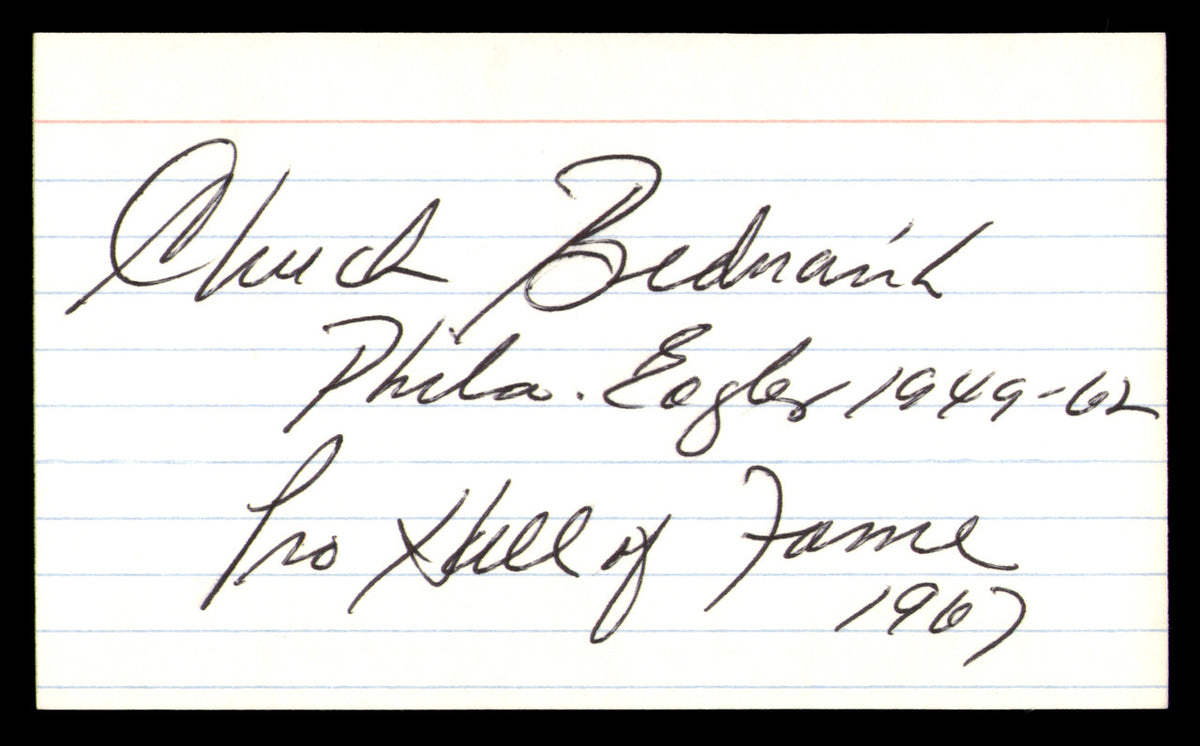 Chuck Bednarik
Phila. Eagles 1949-62
Pro Hall of Fame
1967